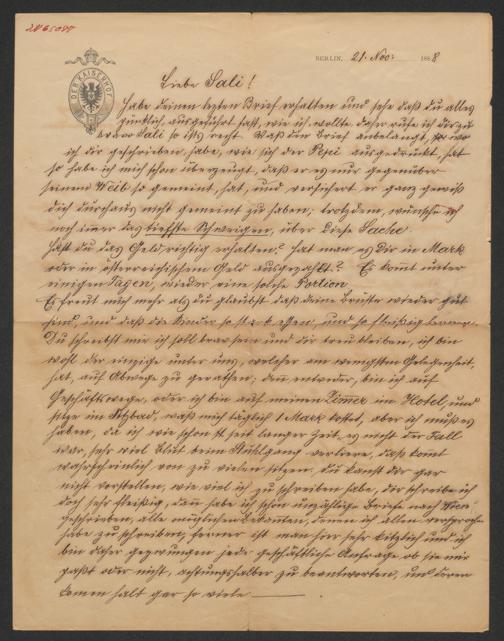 DER KAISERHOF
BERLIN, 21. Nov: 1888
Liebe Sali!
Habe deinen lezten Brief erhalten und sehe daß du alles
pünktlich ausgeführt hast, wie ich wollte daher rufe ich dir zu
bravo Sali so ists recht. Waß den Brief anbelangt,
ich dir geschrieben, habe, wie sich der Pepi ausgedrückt, hat
so habe ich mich schon überzeugt, daß er es nur gegenüber
seinem Weib so gemeint, hat, und versichert er ganz gewiß
dich durchaus nicht gemeint zu haben; trotzdem, wünsche ich
noch immer das tiefste Schweigen, über diese Sache.
Hast du das Geld richtig erhalten? hat man es dir in Mark
oder in österreichischem Geld ausgezahlt? Es kommt unter
einigen Tagen, wieder eine solche Portion.
Es freut mich mehr als du glaubst daß deine Brüste wieder gut
sind, und daß die Kinder so essen, und so fleißig lernen.
Du schreibst mir ich soll brav sein und dir treu bleiben, ich bin
wohl der einzige unter uns, welcher am wenigsten Gelegenheit,
hat, auf Abwege zu gerathen; denn entweder, bin ich auf
Geschäftswege, oder ich bin auf meinen Zimer im Hotel, und
sitze im Sitzbad, waß mich täglich 1 Mark kostet, aber ich muß es
haben, da ich wie schon seit langer Zeit, es nicht der Fall
war, sehr viel Blut beim Stuhlgang verliere, daß komt
wahrscheinlich von zu vielen sitzen. du kanst dir gar
nicht vorstellen, wie viel ich zu schreiben habe, dir schreibe ich
doch sehr fleißig, dann habe ich schon unzählige Briefe nach Wien
geschrieben, alle möglichen Bekanten, denen ich allen versprochen
habe zu schreiben, ferner ist man hier sehr kitzlich und ich
bin daher gezwungen jede geschäftliche Anfrage ob sie mir
paßt oder nicht, achtungshalber zu beantworten, und deren
komen halt gar so viele